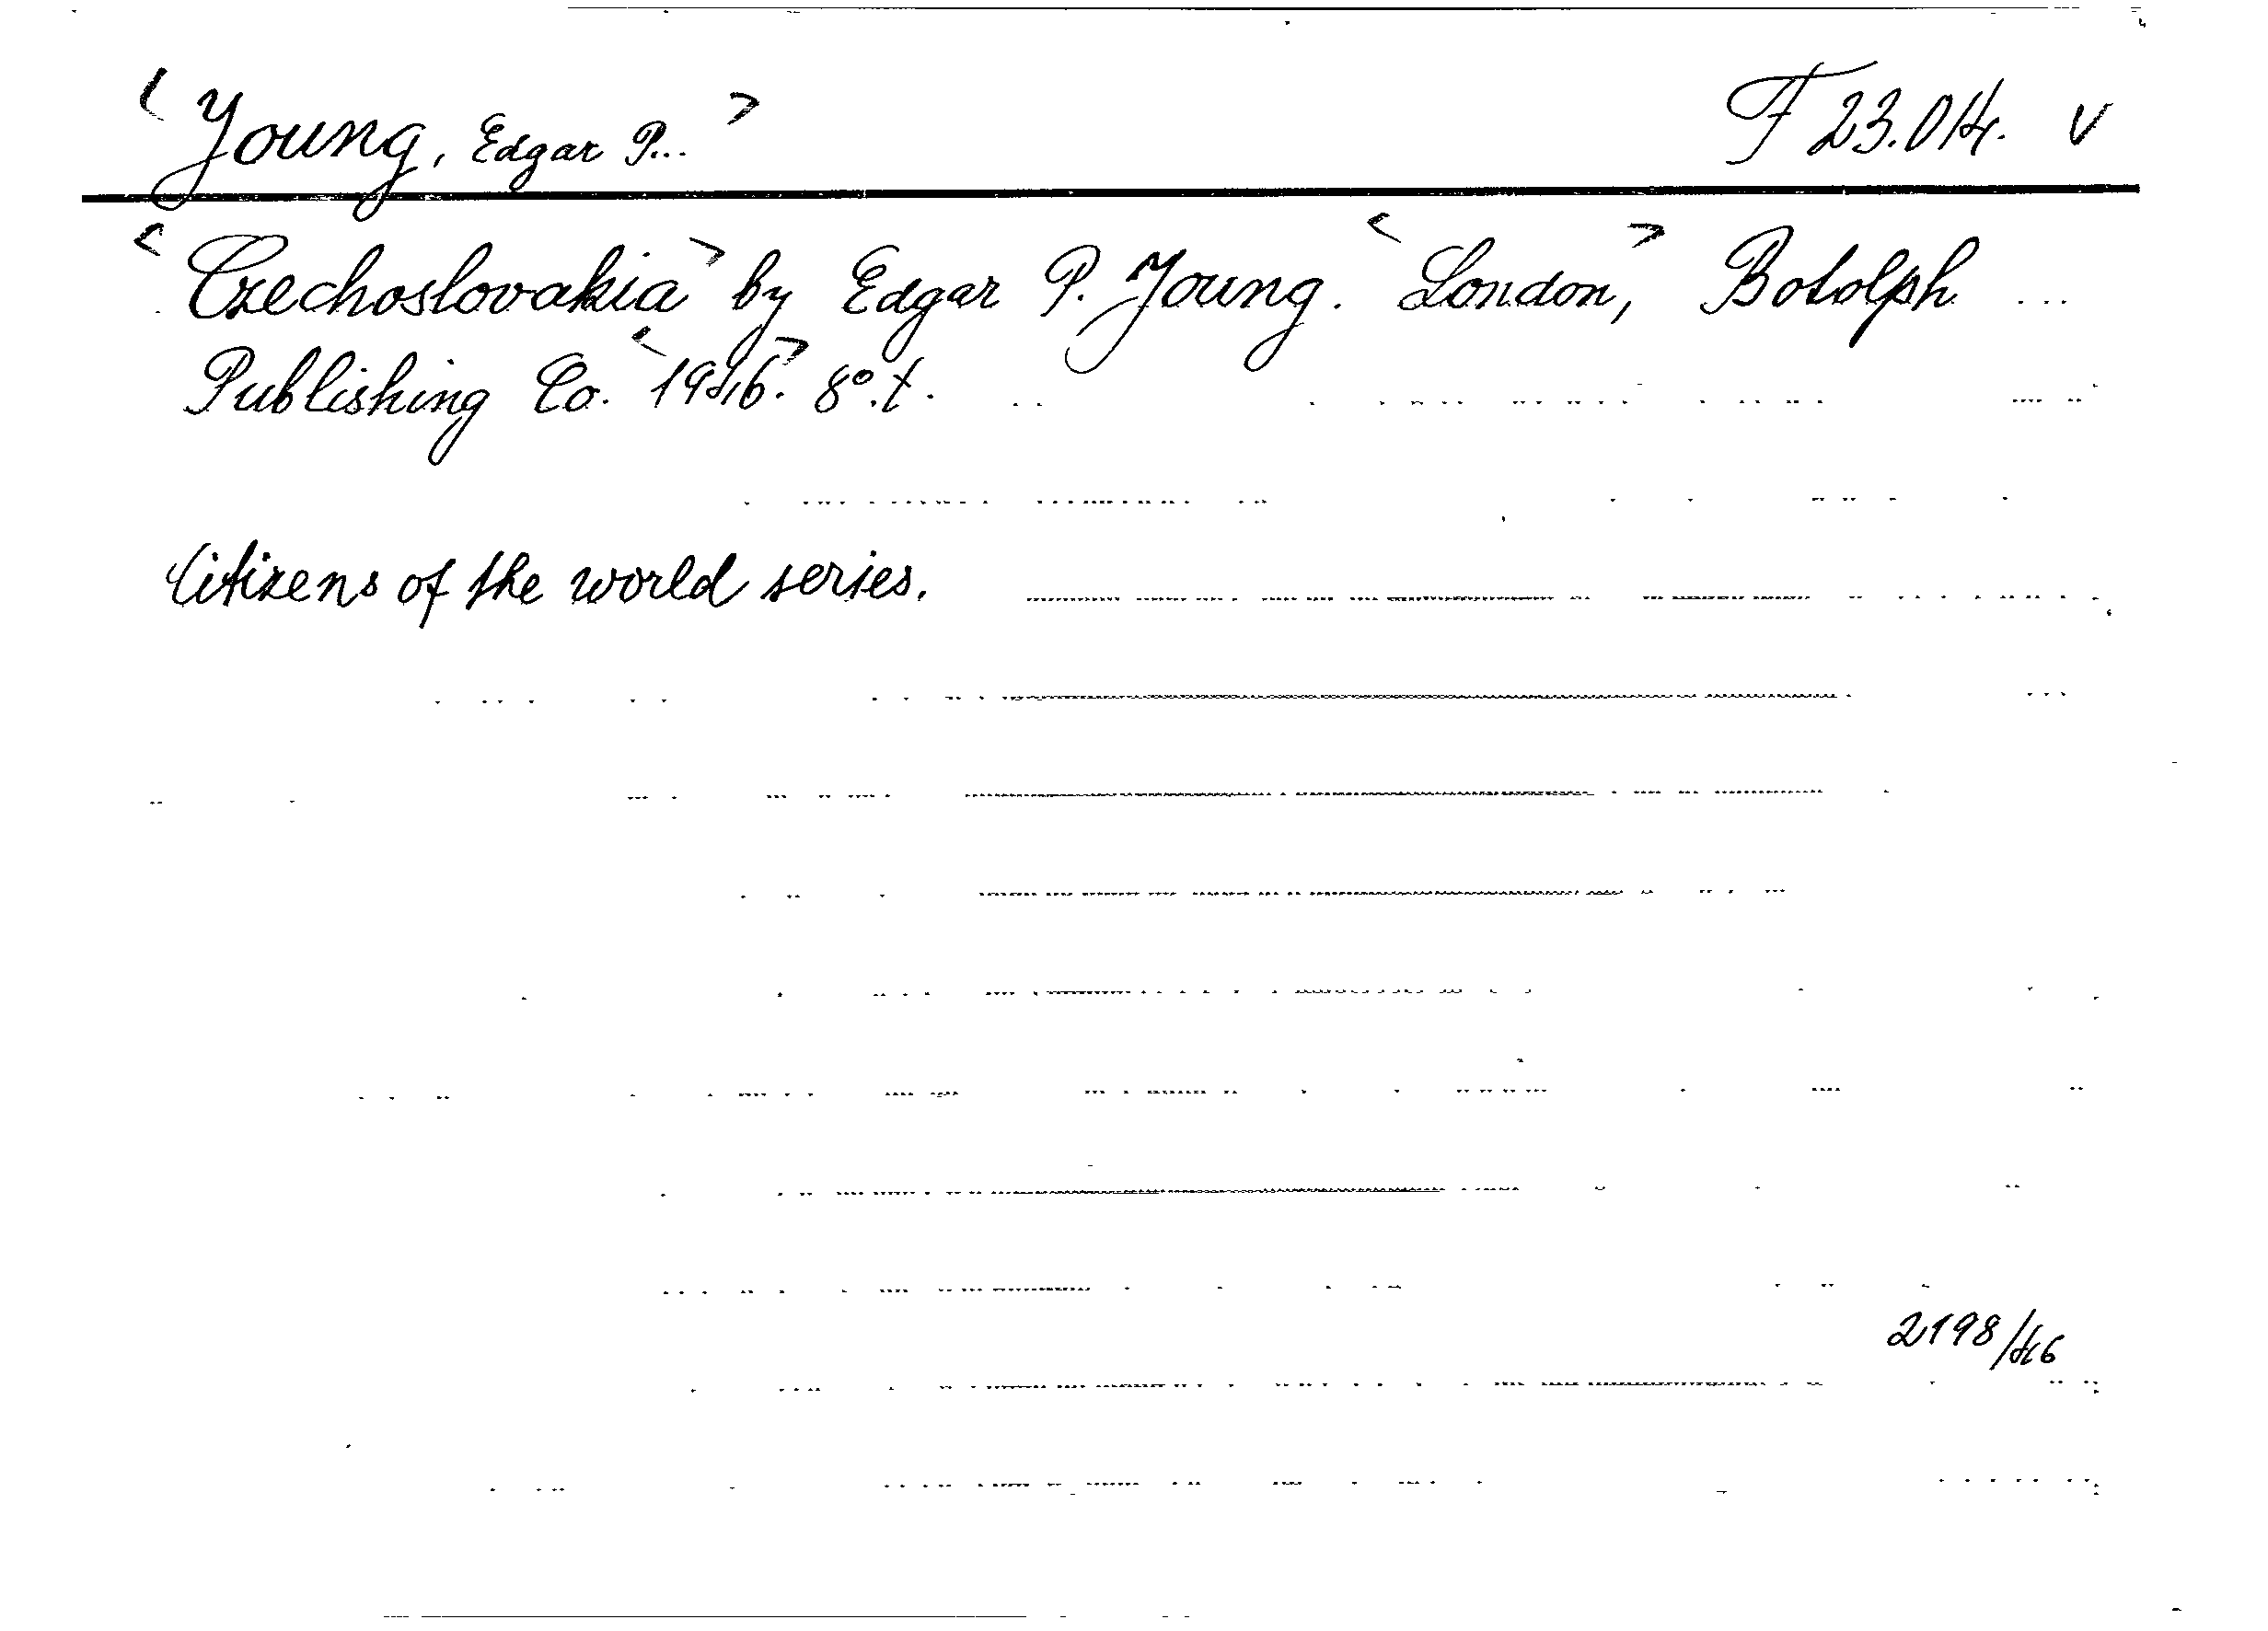 <Young, Edgar P...> F 23.014. v
<Czechoslovakia> by Edgar P. Young. <London,> Botolph
Publishing Co. <1946.> 8°.t.
Citizens of the world series.
2198/46